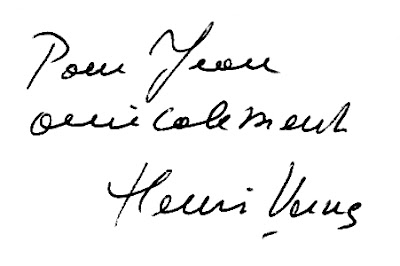 Pour Yvon
amicalement
Henri Vernes